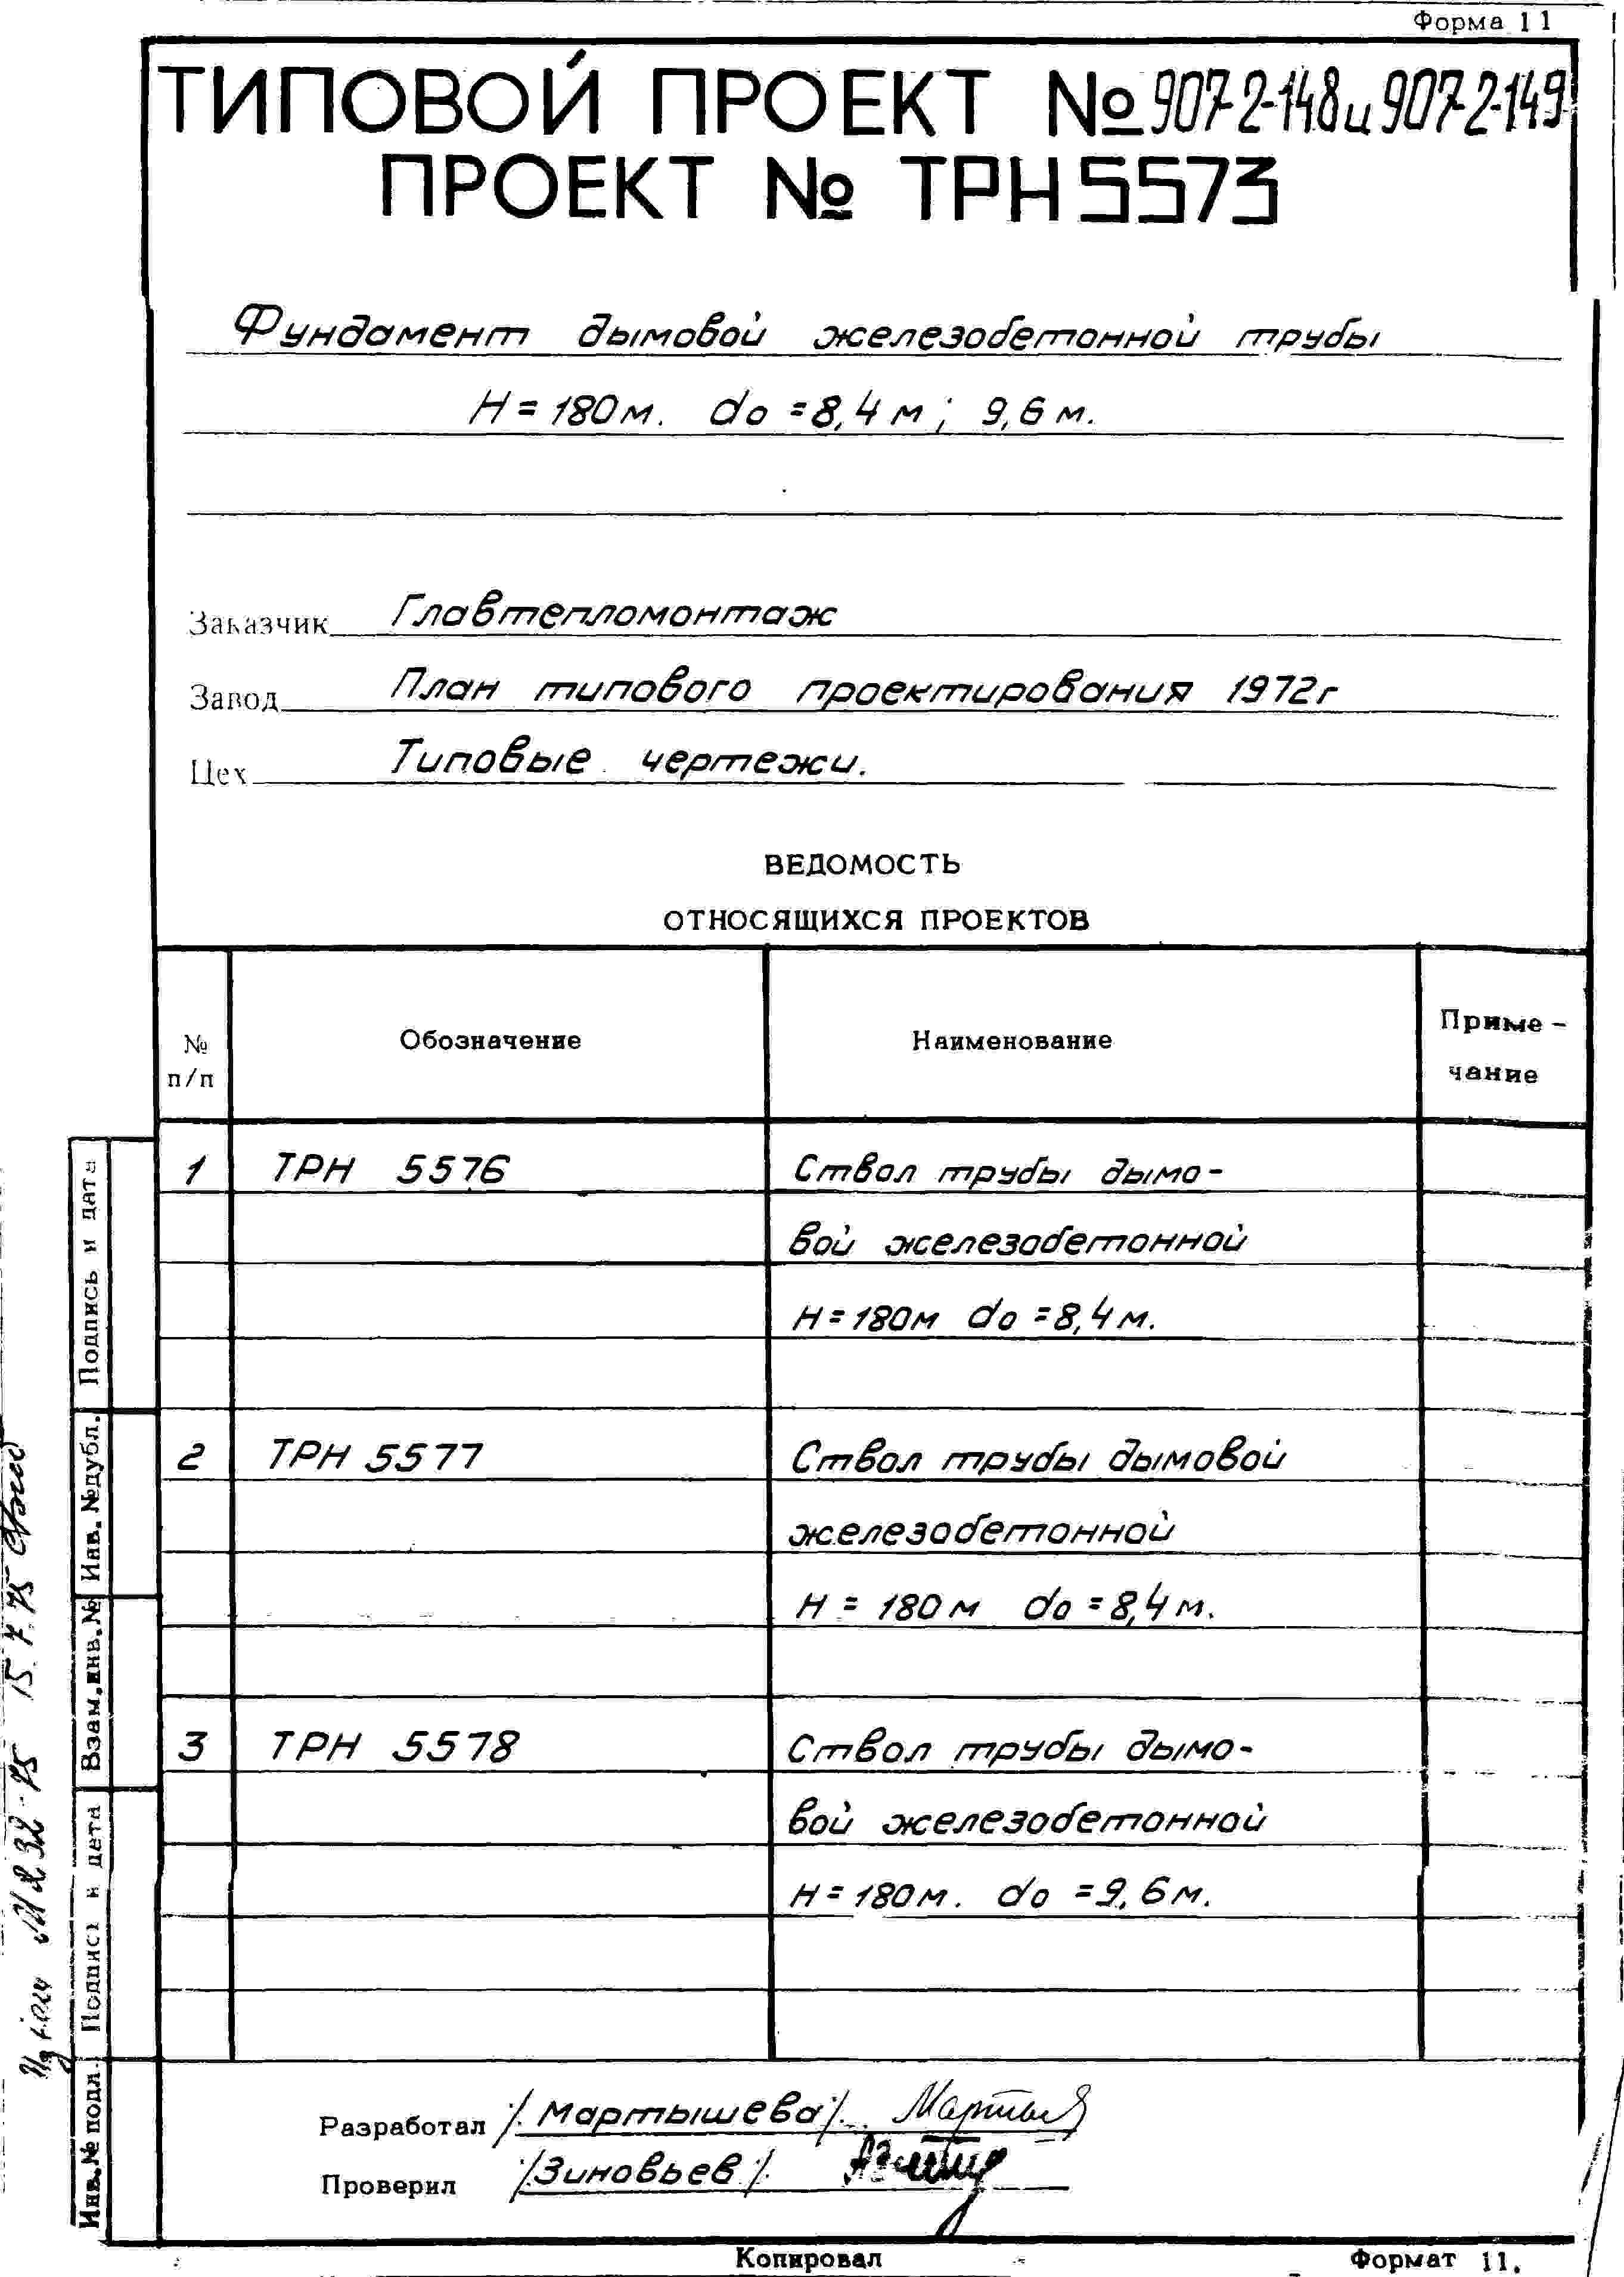 Форма 11
ТИПОВОЙ ПРОЕКТ № 907-2-148 и 907-2-149
ПРОЕКТ № ТРН 5573
Фундамент дымовой железобетонной трубы
H = 180 м. do = 8,4 м; 9,6 м.
Заказчик Главтепломонтаж
Завод План типового проектирования 1972г
Цех Типовые чертежи.
ВЕДОМОСТЬ
ОТНОСЯЩИХСЯ ПРОЕКТОВ
№ п/п Обозначение Наименование Приме-чание
1 ТРН 5576 Ствол трубы дымо-
вой железобетонной
H = 180м do = 8,4 м.
2 ТРН 5577 Ствол трубы дымовой
железобетонной
H = 180 м do = 8,4 м.
3 ТРН 5578 Ствол трубы дымо-
вой железобетонной
H = 180 м. do = 9,6 м.
Разработал /Мартышева/
Проверил /Зиновьев/
Копировал Формат 11.
Подпись и дата
Инв. № дубл.
Взам. инв. №
Подпись и дата
Инв. № подл.
15.7.75